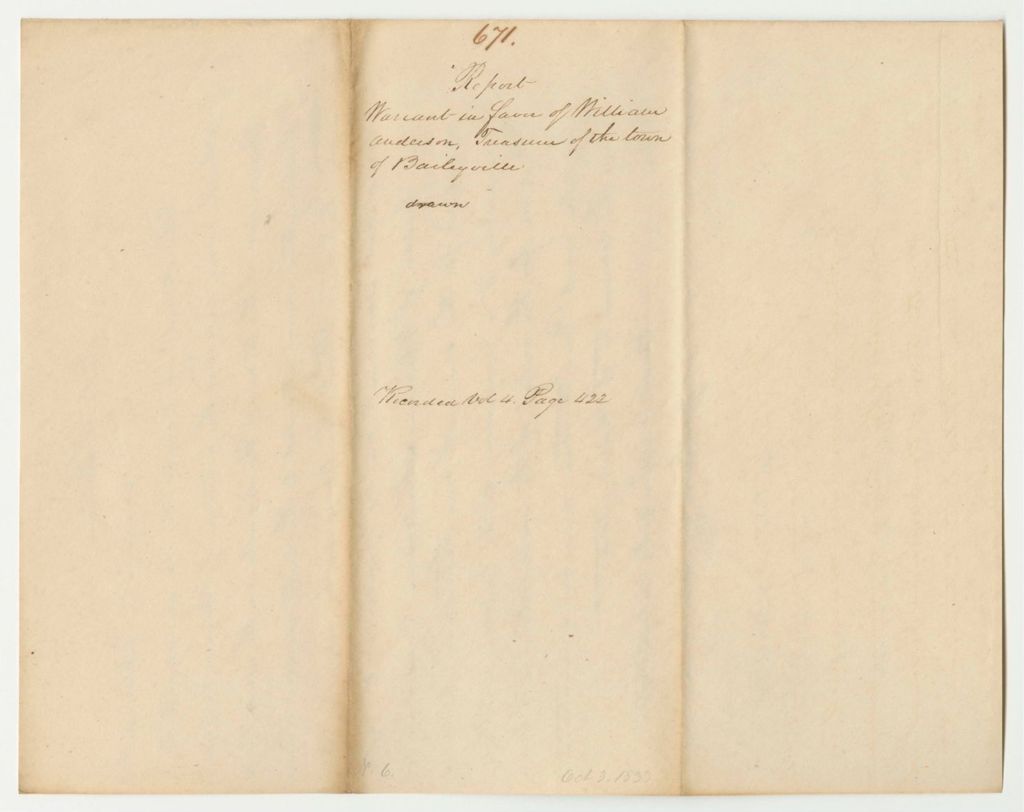 671.
Report
Warrant in favor of William
Anderson, Treasurer of the town
of Baileyville
drawn
Recorded Vol 4. Page 422
6.
Oct 3.